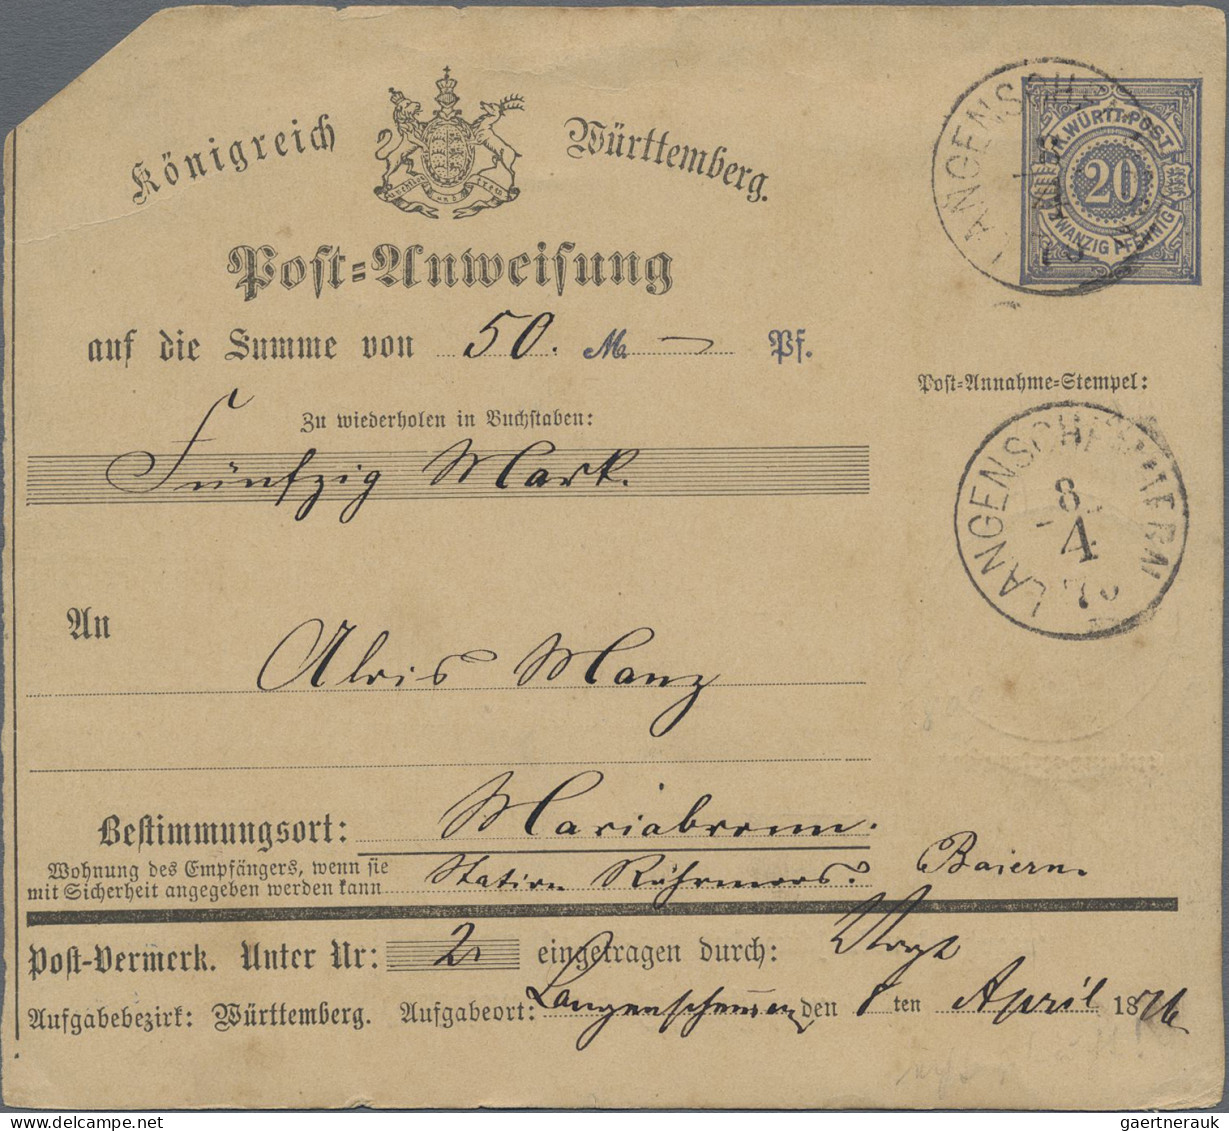 Königreich Württemberg.
Post=Anweisung
auf die Summe von 50. M — Pf.
Zu wiederholen in Buchstaben:
Fünfzig Mark.
An
Alois Manz
Bestimmungsort: Mariabronn.
Wohnung des Empfängers, wenn sie
mit Sicherheit angegeben werden kann
Station Röhrmoos. Baiern.
Post-Vermerk. Unter Nr: 2 eingetragen durch: Vogt
Aufgabebezirk: Württemberg. Aufgabeort: Langenschemmern den 8 ten April 1876
K.WÜRTT.POST
20
ZWANZIG PFENNIG
Post=Annahme=Stempel:
LANGENSCHEMMERN
8
4
gaertnerauk